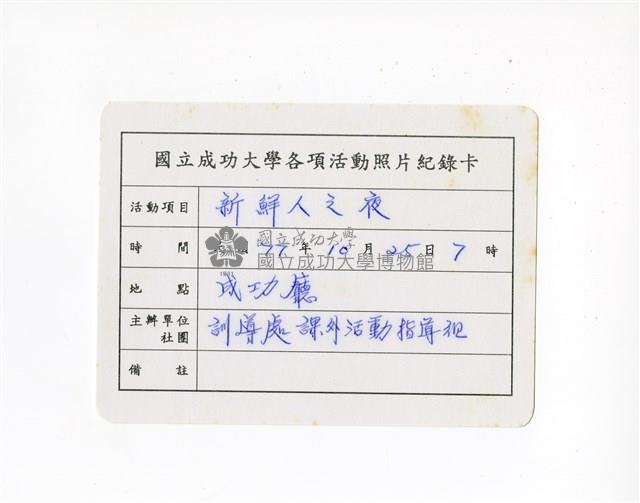 國立成功大學各項活動照片紀錄卡
活動項目 新鮮人之夜
時間 77年10月25日7時
國立成功大學
國立成功大學博物館
1931
地點 成功廳
主辦單位社團 訓導處課外活動指導組
備註